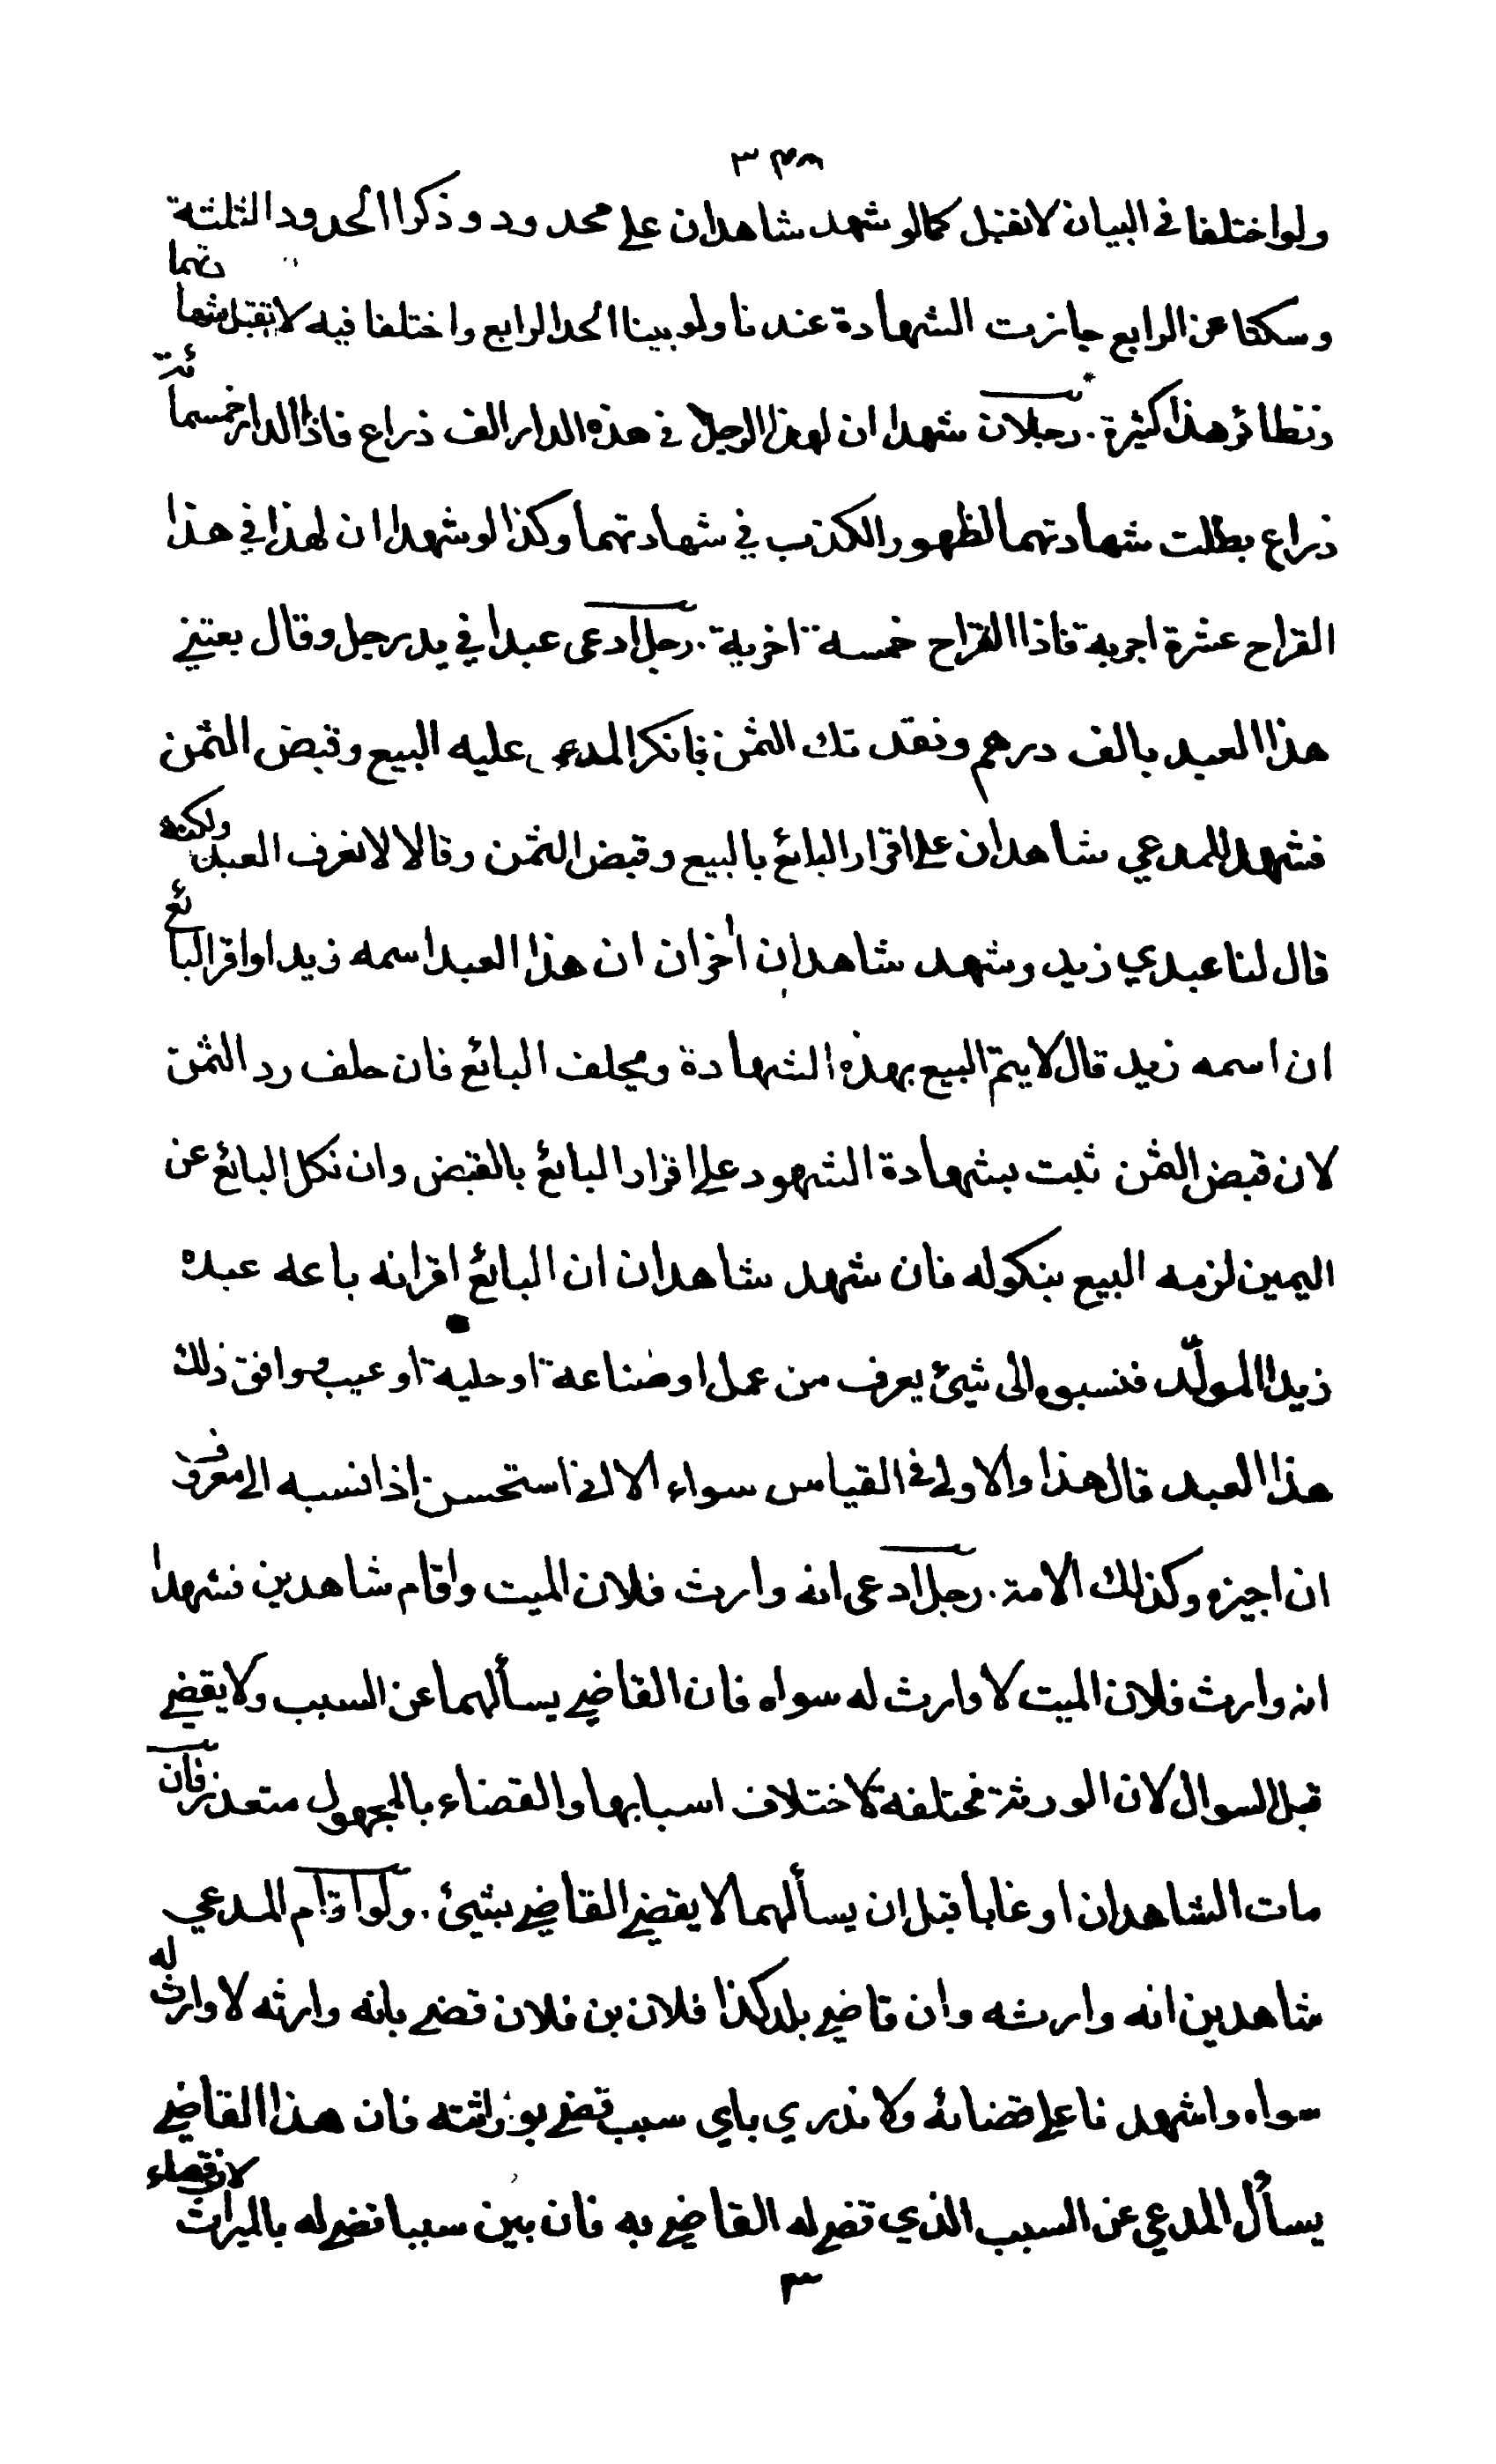 ٣٤٨
ولو اختلفا في البيان لا تقبل كما لو شهد شاهدان على محدود وذكرا الحدود الثلثة
وسكتا عن الرابع جازت الشهادة عندنا ولو بينا الحد الرابع واختلفا فيه لا تقبل شهادتهما
ونظائر هذا كثيرة. رجلان شهدا ان لهذا الرجل في هذه الدار الف ذراع فاذا الدار خمسمائة
ذراع بطلت شهادتهما لظهور الكذب في شهادتهما وكذا لو شهدا ان لهذا في هذا
القراح عشرة اجربة فاذا القراح خمسة اجربة. رجل ادعى عبدا في يد رجل وقال بعتني
هذا العبد بالف درهم ونقدتك الثمن فانكر المدعى عليه البيع وقبض الثمن
فشهد للمدعي شاهدان على اقرار البائع بالبيع وقبض الثمن وقالا لا نعرف العبد ولكنه
قال لنا عبدي زيد وشهد شاهدان اخران ان هذا العبد اسمه زيد او اقر البائع
ان اسمه زيد قال لا يتم البيع بهذه الشهادة ويحلف البائع فان حلف رد الثمن
لان قبض الثمن ثبت بشهادة الشهود على اقرار البائع بالقبض وان نكل البائع عن
اليمين لزمه البيع بنكوله فان شهد شاهدان ان البائع اقر انه باعه عبده
زيدا المولّد فنسبوه الى شيئ يعرف من عمل او صناعة او حلية او عيب فوافق ذلك
هذا العبد قال هذا والاول في القياس سواء الا اني استحسن اذا نسبه الى معروف
ان اجيزه وكذلك الامة. رجل ادعى انه وارث فلان الميت واقام شاهدين فشهدا
انه وارث فلان الميت لا وارث له سواه فان القاضي يسألهما عن السبب ولا يقضي
قبل السوال لان الورثة مختلفة لاختلاف اسبابها والقضاء بالمجهول متعذر فان
مات الشاهدان او غابا قبل ان يسألهما لا يقضي القاضي بشيئ. ولو اقام المدعي
شاهدين انه وارثه وان قاضي بلد كذا فلان بن فلان قضى بانه وارثه لا وارث له
سواه واشهدنا على قضائه ولا ندري باي سبب قضى بوراثته فان هذا القاضي
يسأل المدعي عن السبب الذي قضى له القاضي به فان بين سببا قضى له بالميراث لان قضاء
٣